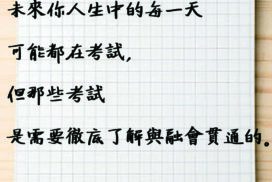 未來你人生中的每一天
可能都在考試,
但那些考試
是需要徹底了解與融會貫通的。